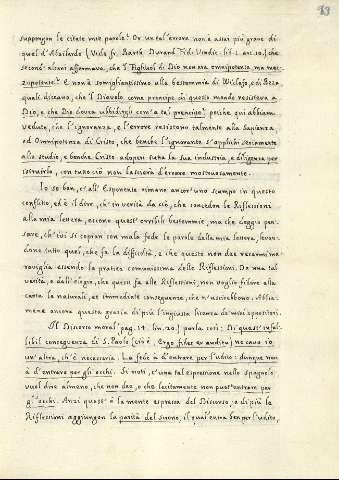 93
suppongon le citate mie parole? Or un tal'errore non è assai più grave di
quel d'Abailardo (Vide fr. Barth. Durand Fidei Vindic. lib. 1. art. 10.) che
secondo alcuni affermava, che 'l Figliuol di Dio non era omnipotenza ma mez=
zapotenza? E non è somigliantissimo alla bestemmia di Wiclefo, e di Beza,
quali diceano, che 'l Diavolo come principe di questo mondo resisteva a
Dio, e che Dio dovea ubbidirgli com'a tal prencipe? poiche qui abbiam
veduto, che l'ignoranza, e l'errore resistono talmente alla Sapienza,
ed Omnipotenza di Cristo, che benche l'ignorante s'applichi seriamente
allo studio, e benche Cristo adopri tutta la sua industria, e diligenza per
istruirlo, con tutto ciò non lascierà d'errare mostruosamente.
Io so ben, ch'all'Esponente rimane ancor'uno scampo in questo
conflitto, ed è il dire, ch'in verità da ciò, che concedon le Riflessioni
alla mia lettera, escono quest'orribili bestemmie, ma che deggio pen=
sare, ch'ivi si copian con mala fede le parole della mia lettera, levan=
done tutto quel, che fa la difficoltà, e che questo non dee recarmi ma=
raviglia essendo la pratica comunissima delle Riflessioni. Da una tal
verità, e dall'elogio, che quest' fa alle Riflessioni, non voglio fidare alla
carta le naturali, ed immediate conseguenze, che n'uscirebbono. Abbia=
mene ancora questa grazia di più l'ingiusta licenza de' miei oppositori.
Il Discorso moral pag. 14. lin. 20.) parla così: Di quest'infal=
libil conseguenza di S. Paolo (cio è, Ergo fides ex auditu) ne cavo io
un'altra, ch'è necessaria. La fede à d'entrare per l'udito: dunque non
à d'entrare per gli occhi. Si noti, ch'una tal espressione nello spagnolo
vuol dire almeno, che non dee, o che lecitamente non puot'entrare per
gl'occhi. Anzi quest'è la mente espressa del Discorso, e di più le
Riflessioni aggiungon la parità del suono, il qual entra ben per l'udito,